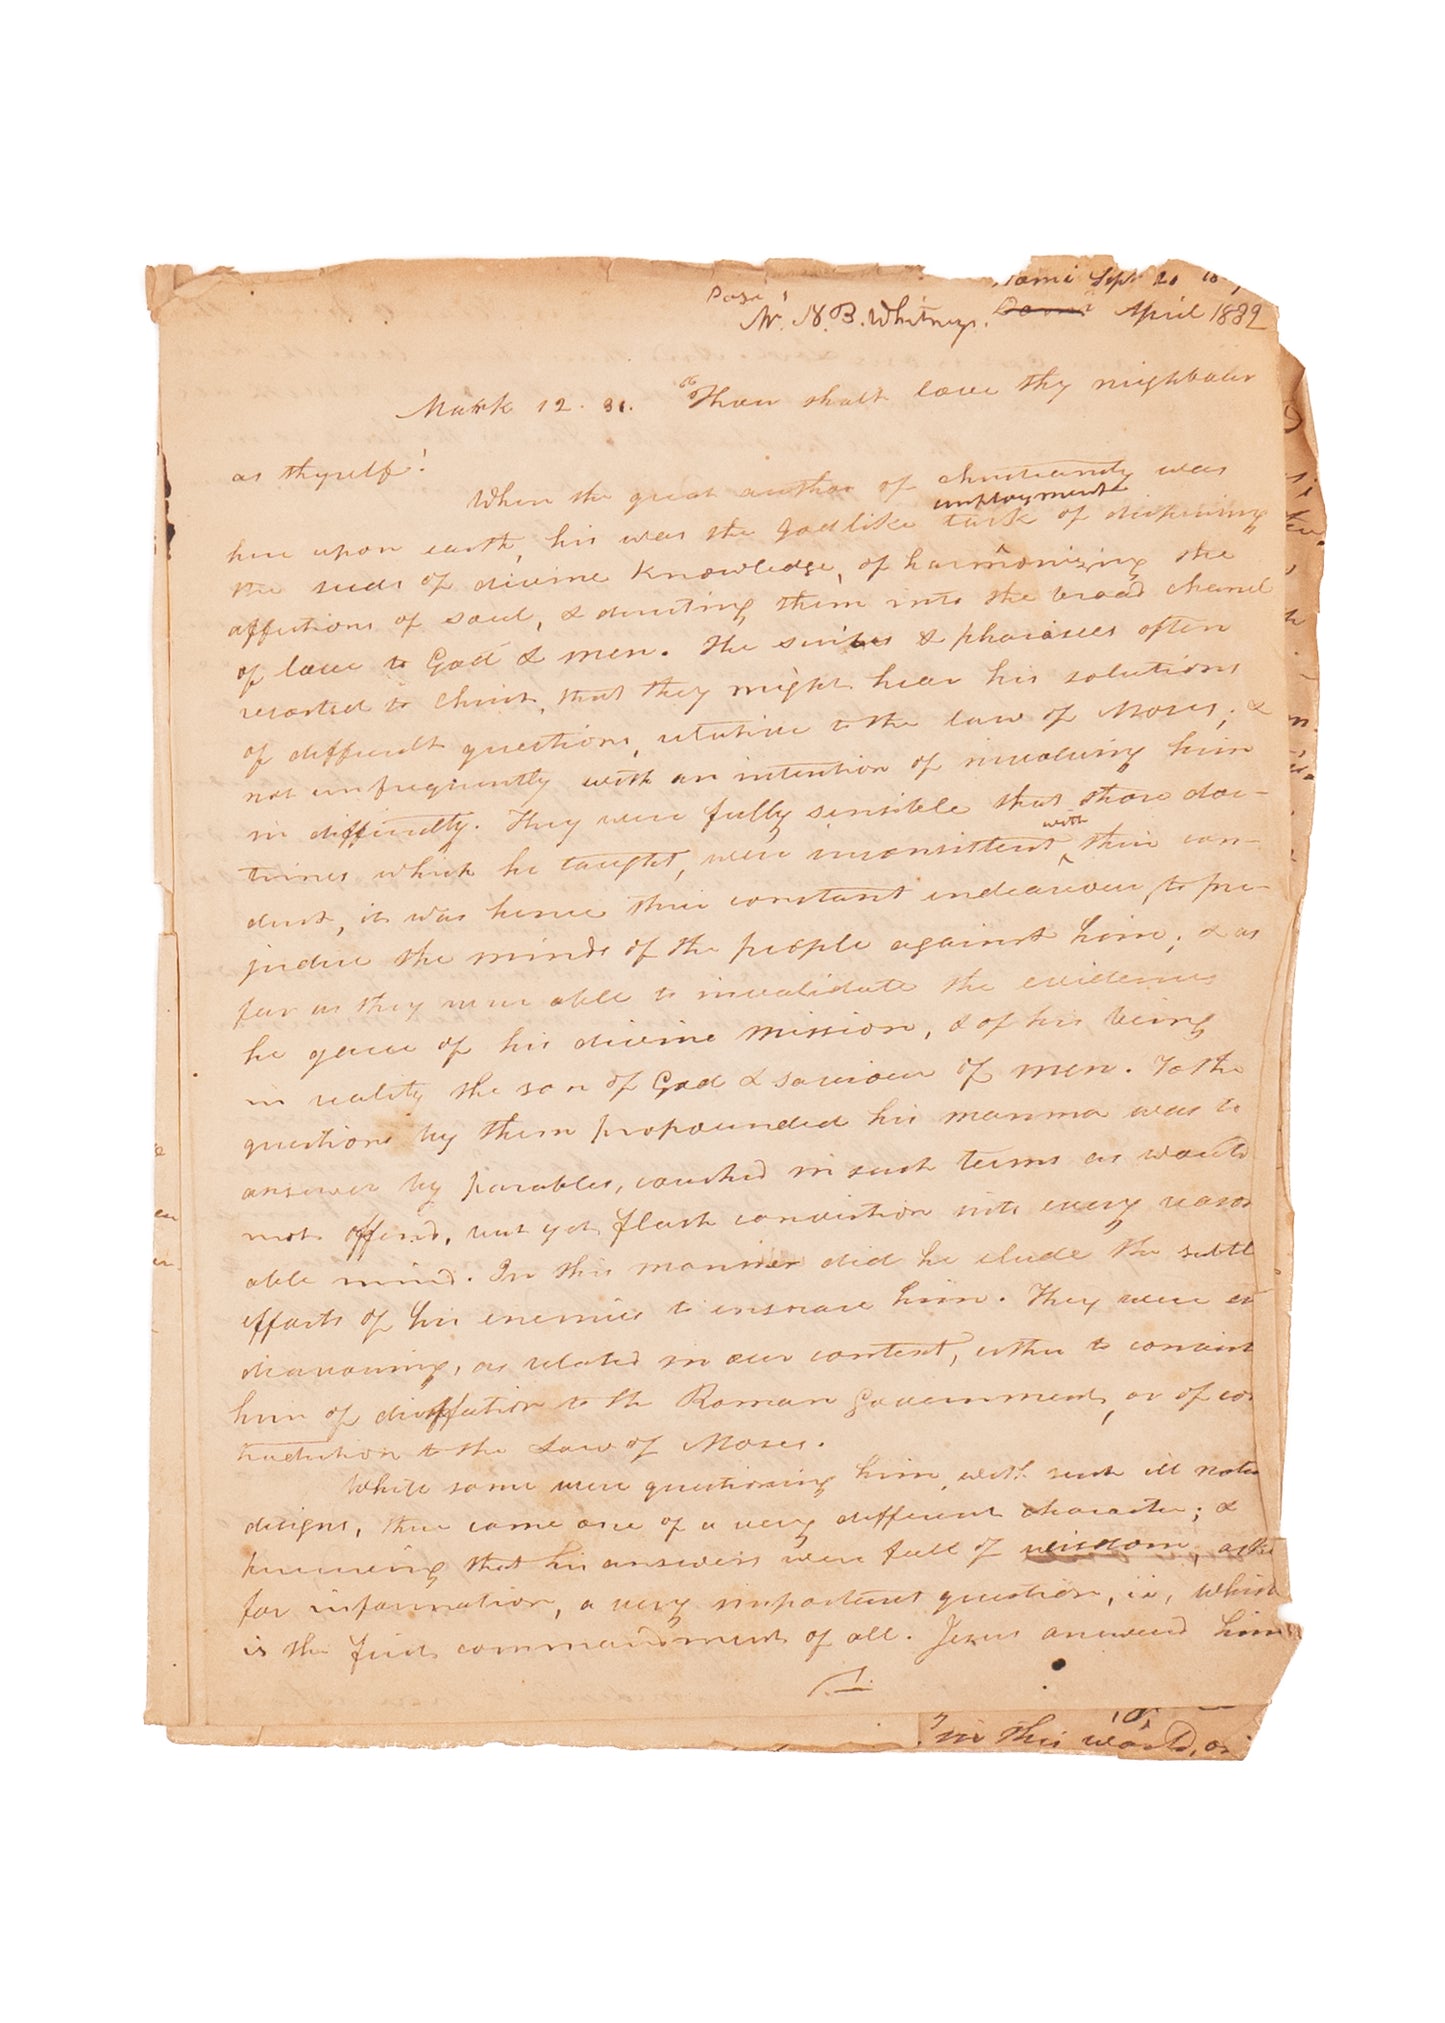 Sept 20
Mr. N. B. Whitney. April 1832
Mark 12. 31. "Thou shalt love thy neighbour
as thyself!
When the great author of christianity was
employment
here upon earth, his was the godlike task of dispensing
the seeds of divine knowledge, of harmonizing the
affections of soul, & directing them into the broad chanel
of love to God & men. The scribes & pharisees often
resorted to Christ, that they might hear his solutions
of difficult questions, relative to the law of Moses; &
not unfrequently with an intention of involving him
in difficulty. They were fully sensible that those doc-
with
trines which he taught, were inconsistent their con-
duct, it was hence their constant endeavour, to pre-
judice the minds of the people against him; & as
far as they were able to invalidate the evidences
he gave of his divine mission, & of his being
in reality the son of God & saviour of men. To the
questions by them propounded his manner was to
answer by parables, couched in such terms as would
not offend, but yet flash conviction into every reason
able mind. In this manner did he elude the subtl
efforts of his enemies to ensnare him. They were en
deavouring, as related in our context, either to convict
him of disaffection to the Roman Government, or of con
tradiction to the Law of Moses.
While some were questioning him, with such ill natur
designs, there came one of a very different character; &
perceiving that his answers were full of wisdom, asked
for information, a very important question, ie, which
is the first commandment of all. Jesus answered him
1.
in this world, or